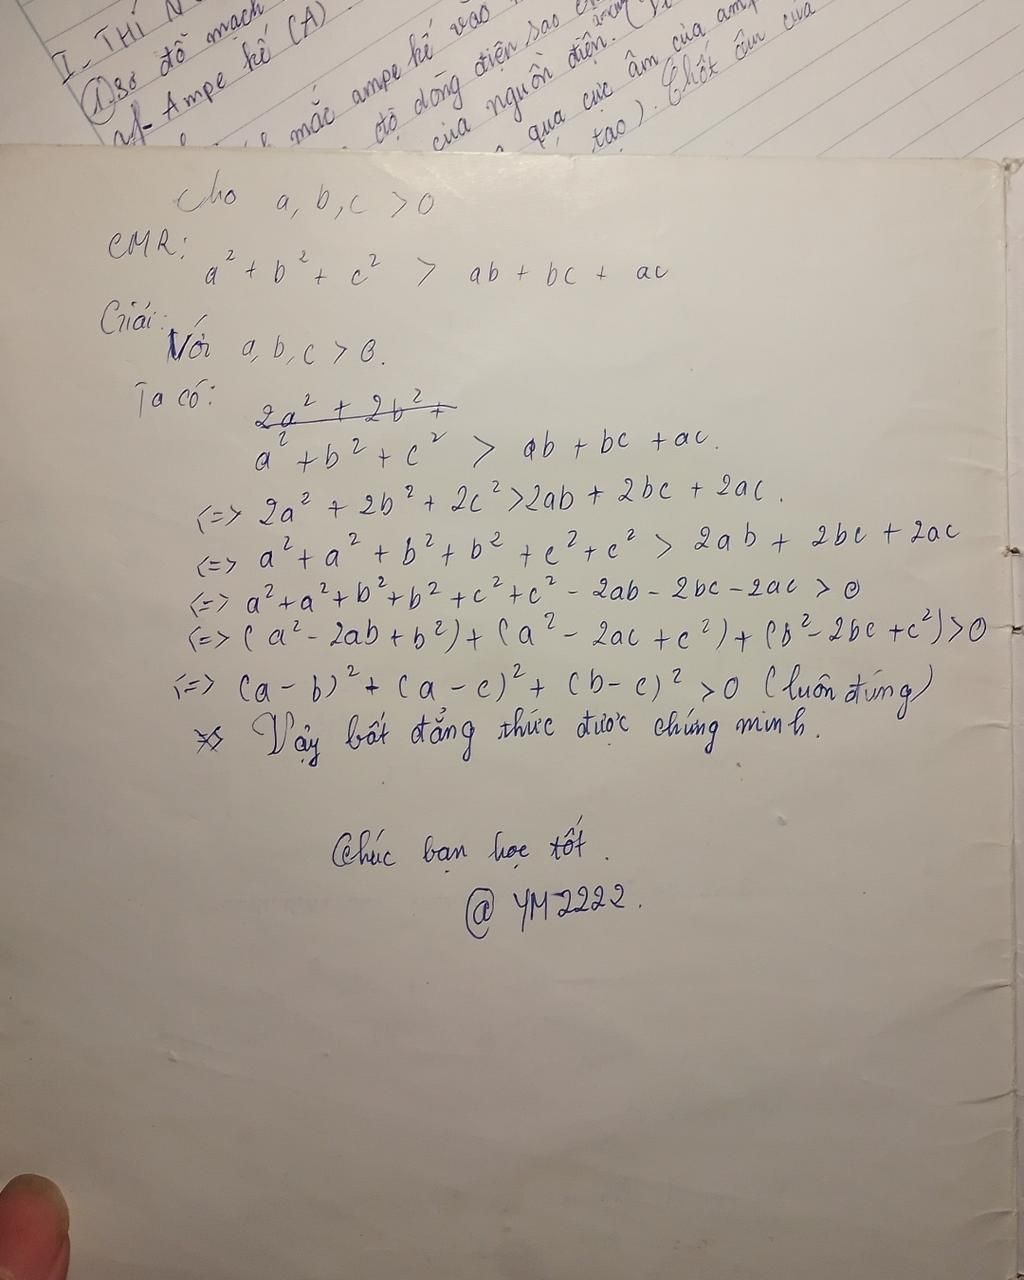 I- THÍ N
① Sơ đồ mạch
a/- Ampe kế (A)
mắc ampe kế vào
độ dòng điện sao
của nguồn điện.
qua cực âm của amp
tạo). Chốt âm của
Cho a, b, c > 0
CMR:
a² + b² + c² > ab + bc + ac
Giải:
Với a, b, c > 0.
Ta có:
2a² + 2b² +
a² + b² + c² > ab + bc + ac.
<=> 2a² + 2b² + 2c² > 2ab + 2bc + 2ac.
<=> a² + a² + b² + b² + c² + c² > 2ab + 2bc + 2ac
<=> a² + a² + b² + b² + c² + c² - 2ab - 2bc - 2ac > 0
<=> (a² - 2ab + b²) + (a² - 2ac + c²) + (b² - 2bc + c²) > 0
<=> (a - b)² + (a - c)² + (b - c)² > 0 (luôn đúng)
Vậy bất đẳng thức được chứng minh.
Chúc bạn học tốt.
@ YM2222.